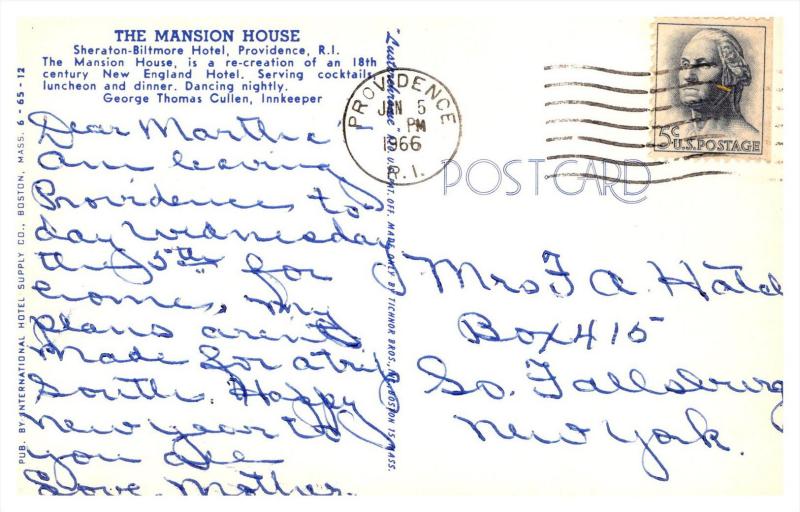 THE MANSION HOUSE
Sheraton-Biltmore Hotel, Providence, R.I.
The Mansion House, is a re-creation of an 18th
century New England Hotel. Serving cocktails
luncheon and dinner. Dancing nightly.
George Thomas Cullen, Innkeeper
Dear Martha
am leaving
Providence to
day Wednesday
the 5th for
home, my
plans aren't
made for a trip
South. Happy
New Year to
you all
Love Mother.
PUB. BY INTERNATIONAL HOTEL SUPPLY CO., BOSTON, MASS. 6-65-12
"Lusterchrome" REG. U.S. PAT. OFF. MADE ONLY BY TICHNOR BROS., BOSTON 15, MASS.
PROVIDENCE
JAN 5
PM
1966
R.I.
5¢ U.S. POSTAGE
POST CARD
Mrs F A Hatch
Box 415
So. Fallsburg
New York.